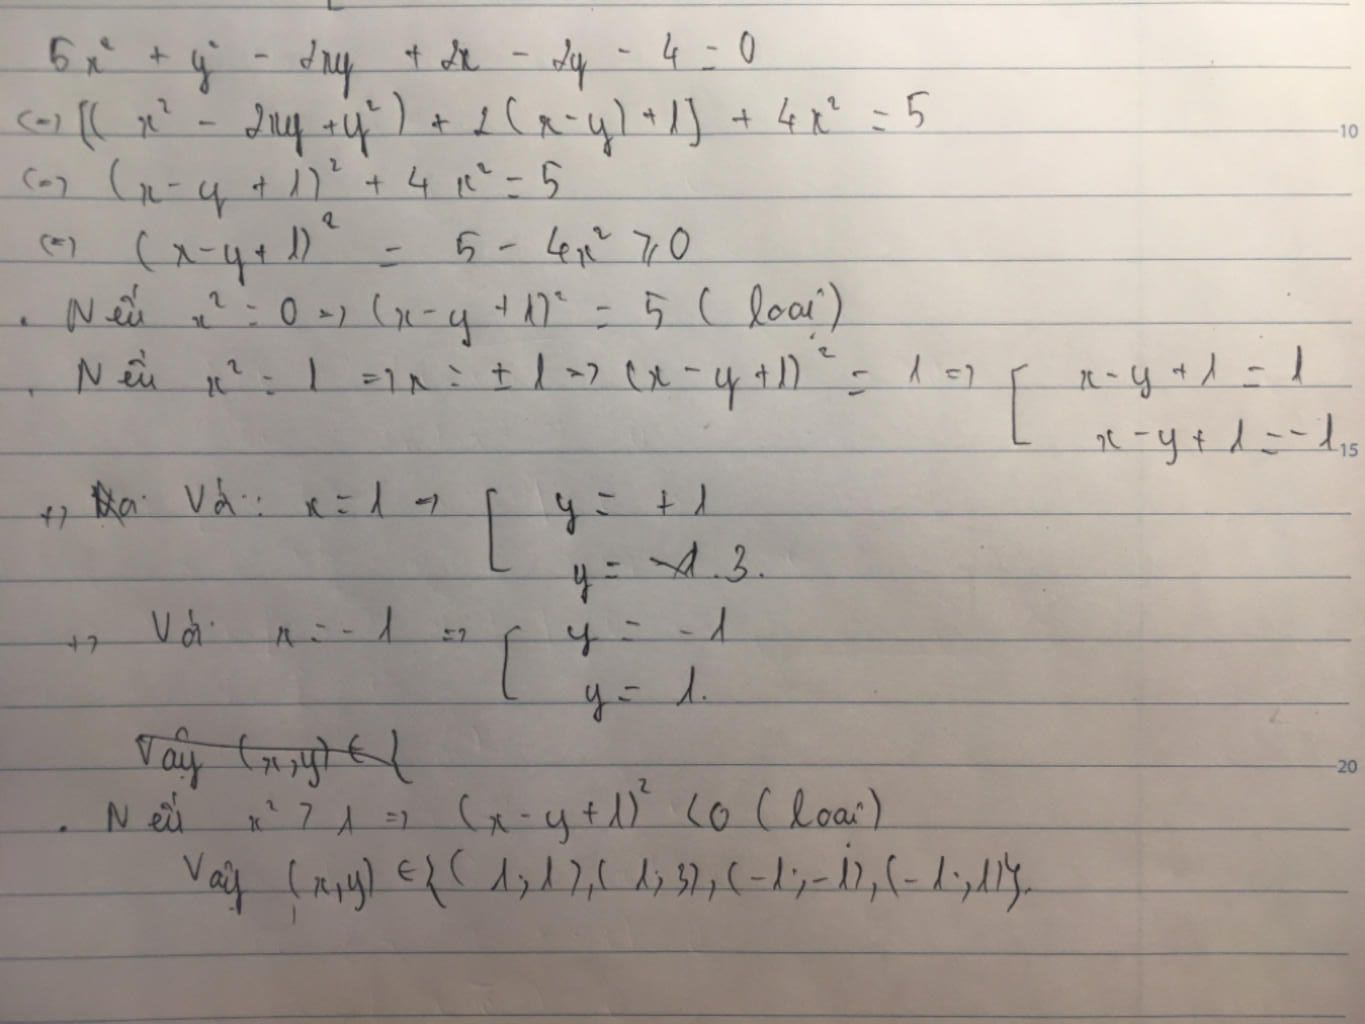 5x² + y² - 2xy + 2x - 2y - 4 = 0
<=> [(x² - 2xy + y²) + 2(x-y) + 1] + 4x² = 5
<=> (x - y + 1)² + 4x² = 5
<=> (x-y+1)² = 5 - 4x² ≥ 0
. Nếu x² = 0 => (x-y+1)² = 5 (loại)
. Nếu x² = 1 => x = ±1 => (x-y+1)² = 1 => [ x-y+1 = 1
x-y+1 = -1
+> Với x = 1 => [ y = +1
y = 3.
+> Với x = -1 => [ y = -1
y = 1.
Vậy (x,y) ∈ {
. Nếu x² > 1 => (x-y+1)² < 0 (loại)
Vậy (x,y) ∈ {(1;1), (1;3), (-1;-1), (-1;1)}.
10
15
20